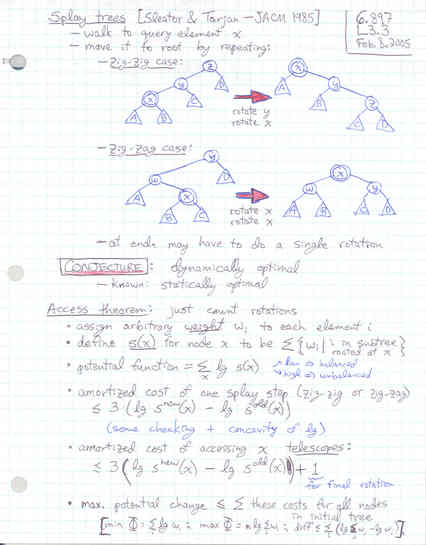 Splay trees [Sleator & Tarjan - JACM 1985]
6.897
L3.3
Feb. 8, 2005
- walk to query element x
- move it to root by repeating:
- Zig-zig case:
z
y
x
A
B
C
D
rotate y
rotate x
x
A
y
B
z
C
D
- Zig-zag case:
y
w
D
x
A
B
C
rotate x
rotate x
x
w
y
A
B
C
D
- at end, may have to do a single rotation
CONJECTURE: dynamically optimal
- known: statically optimal
Access theorem: just count rotations
• assign arbitrary weight wᵢ to each element i
• define s(x) for node x to be Σ{wᵢ | i in subtree rooted at x}
• potential function = Σₓ lg s(x)
low ⇒ balanced
high ⇒ unbalanced
• amortized cost of one splay step (zig-zig or zig-zag)
≤ 3·(lg s^new(x) - lg s^old(x))
(some checking + concavity of lg)
• amortized cost of accessing x telescopes:
≤ 3(lg s^new(x) - lg s^old(x)) + 1
for final rotation
• max. potential change ≤ Σ these costs for all nodes
in initial tree
[min Φ = Σ lg wᵢ ; max Φ = n lg Σ wᵢ ; diff ≤ Σ (lg Σ wᵢ - lg wᵢ)]